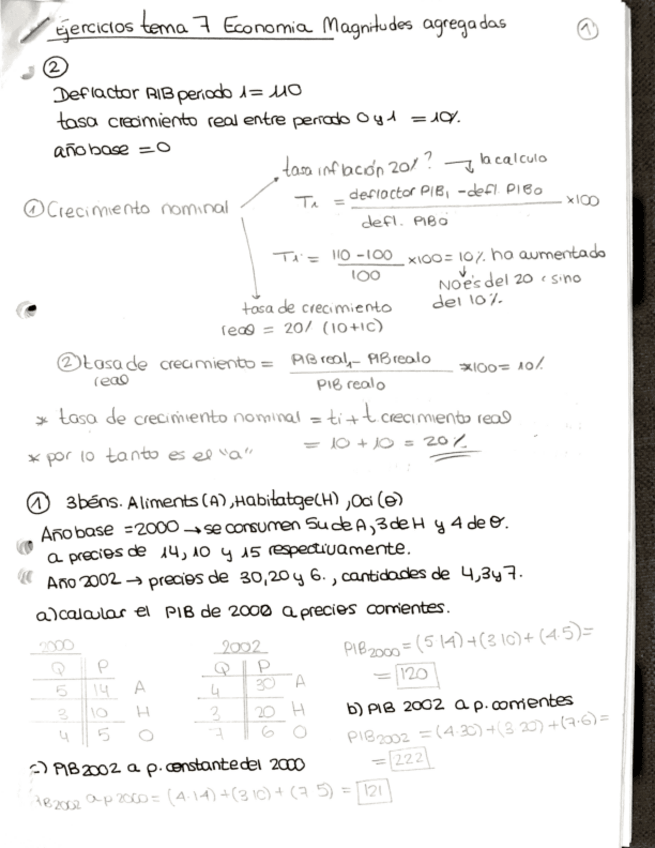 Ejercicios tema 7 Economia Magnitudes agregadas
1
②
Deflactor PIB periodo 1 = 110
tasa crecimiento real entre periodo 0 y 1 = 10%.
año base = 0
tasa inflación 20% ? → la calculo
① Crecimiento nominal
Ti = deflactor PIB1 - defl. PIB0 / defl. PIB0 x100
Ti = 110 - 100 / 100 x100 = 10% ha aumentado
NO es del 20% sino
del 10%
tasa de crecimiento
real = 20% (10+10)
② tasa de crecimiento real = PIB real1 - PIB real0 / PIB real0 x100 = 10%
* tasa de crecimiento nominal = ti + t crecimiento real
= 10 + 10 = 20%
* por lo tanto es el "a"
① 3 béns. Aliments (A), Habitatge (H), Oci (O)
Año base = 2000 → se consumen 5u de A, 3 de H y 4 de O.
a precios de 14, 10 y 15 respectivamente.
Año 2002 → precios de 30, 20 y 6., cantidades de 4, 3 y 7.
a) calcular el PIB de 2000 a precios corrientes.
2000
Q P
5 14 A
3 10 H
4 5 O
2002
Q P
4 30 A
3 20 H
7 6 O
PIB2000 = (5·14) + (3·10) + (4·5) =
= 120
b) PIB 2002 a p. corrientes
PIB2002 = (4·30) + (3·20) + (7·6) =
= 222
c) PIB 2002 a p. constante del 2000
PIB2002 a p 2000 = (4·14) + (3·10) + (7·5) = 121